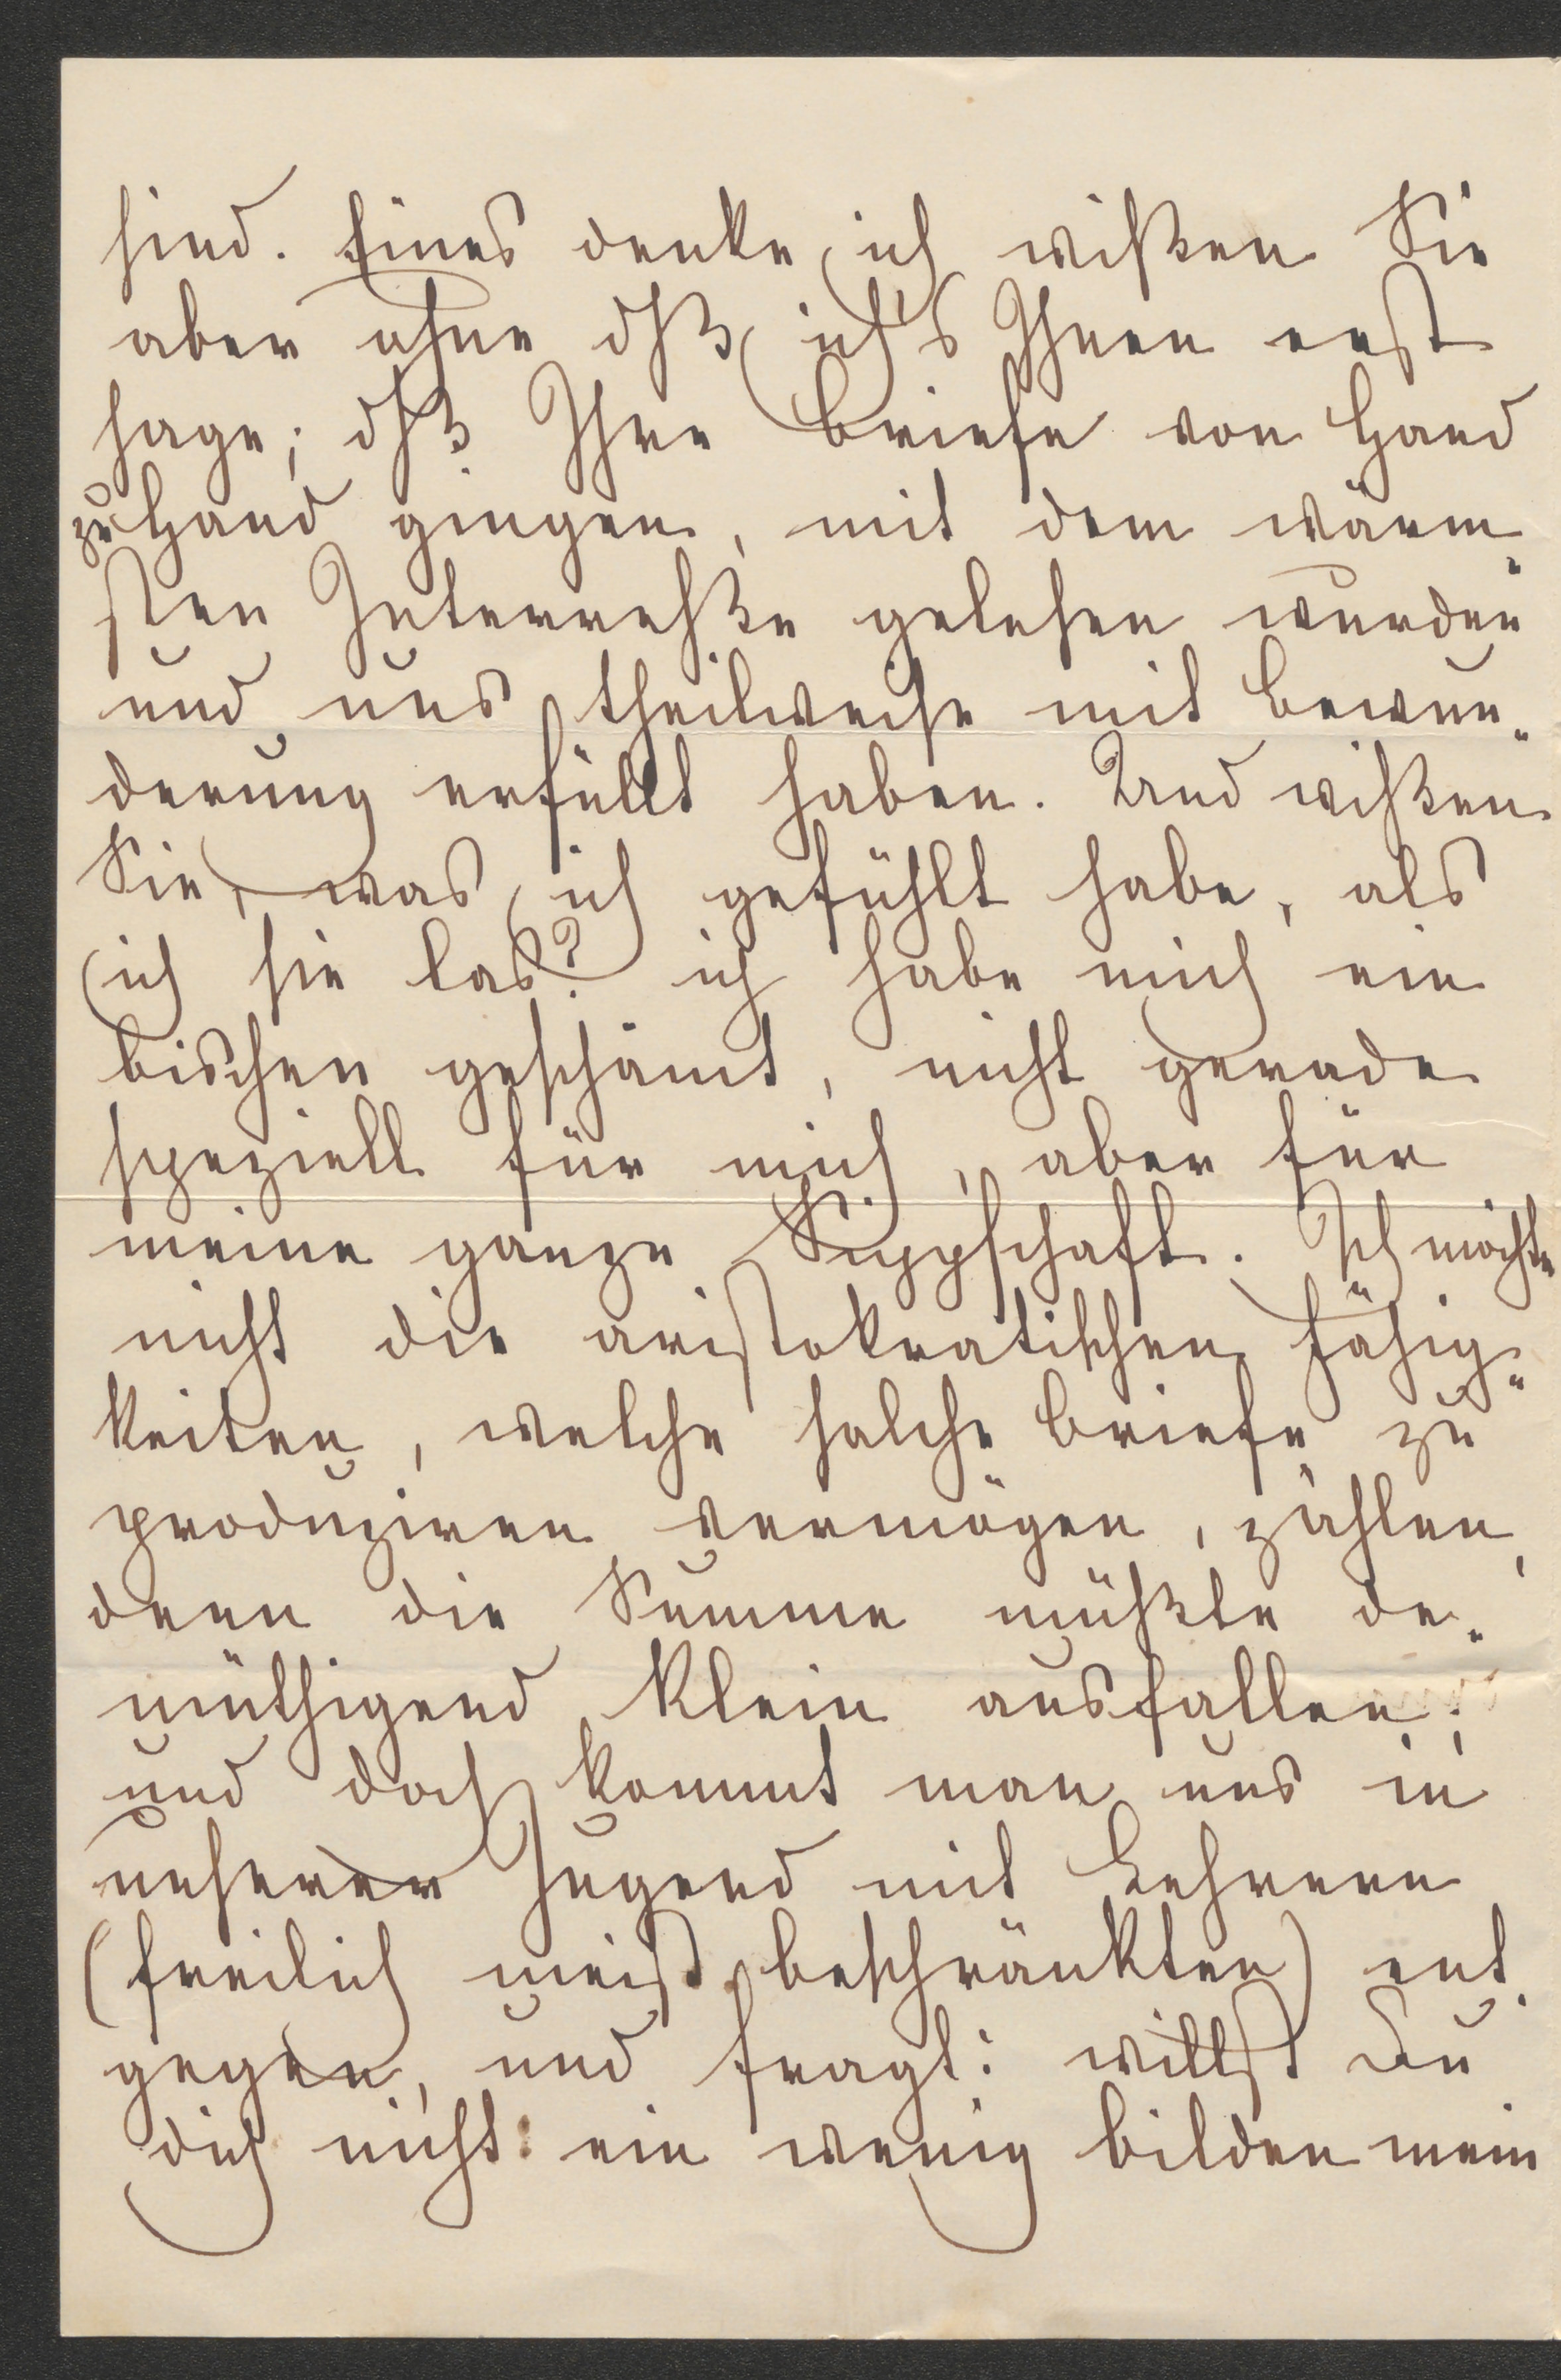 sind. Eines denke ich wißen Sie
aber ohne dß ich's Ihnen erst
sage; dß Ihre Briefe von Hand
zu Hand gingen, mit dem wärm-
sten Interreße gelesen wurden
und uns theilweise mit Bewun-
derung erfüllt haben. Und wißen
Sie, was ich gefühlt habe, als
ich sie las? ich habe mich ein
bischen geschämt, nicht gerade
speziell für mich, aber für
meine ganze Sippschaft. Ich möchte
nicht die aristokratischen Fähig-
keiten, welche solche Briefe zu
produziren vermögen, zählen,
denn die Summe müßte de-
müthigend klein ausfallen;
und doch kommt man uns in
unserer Jugend mit Lehrern
(freilich meist beschränkten) ent-
gegen, und fragt: willst Du
dich nicht ein wenig bilden mein